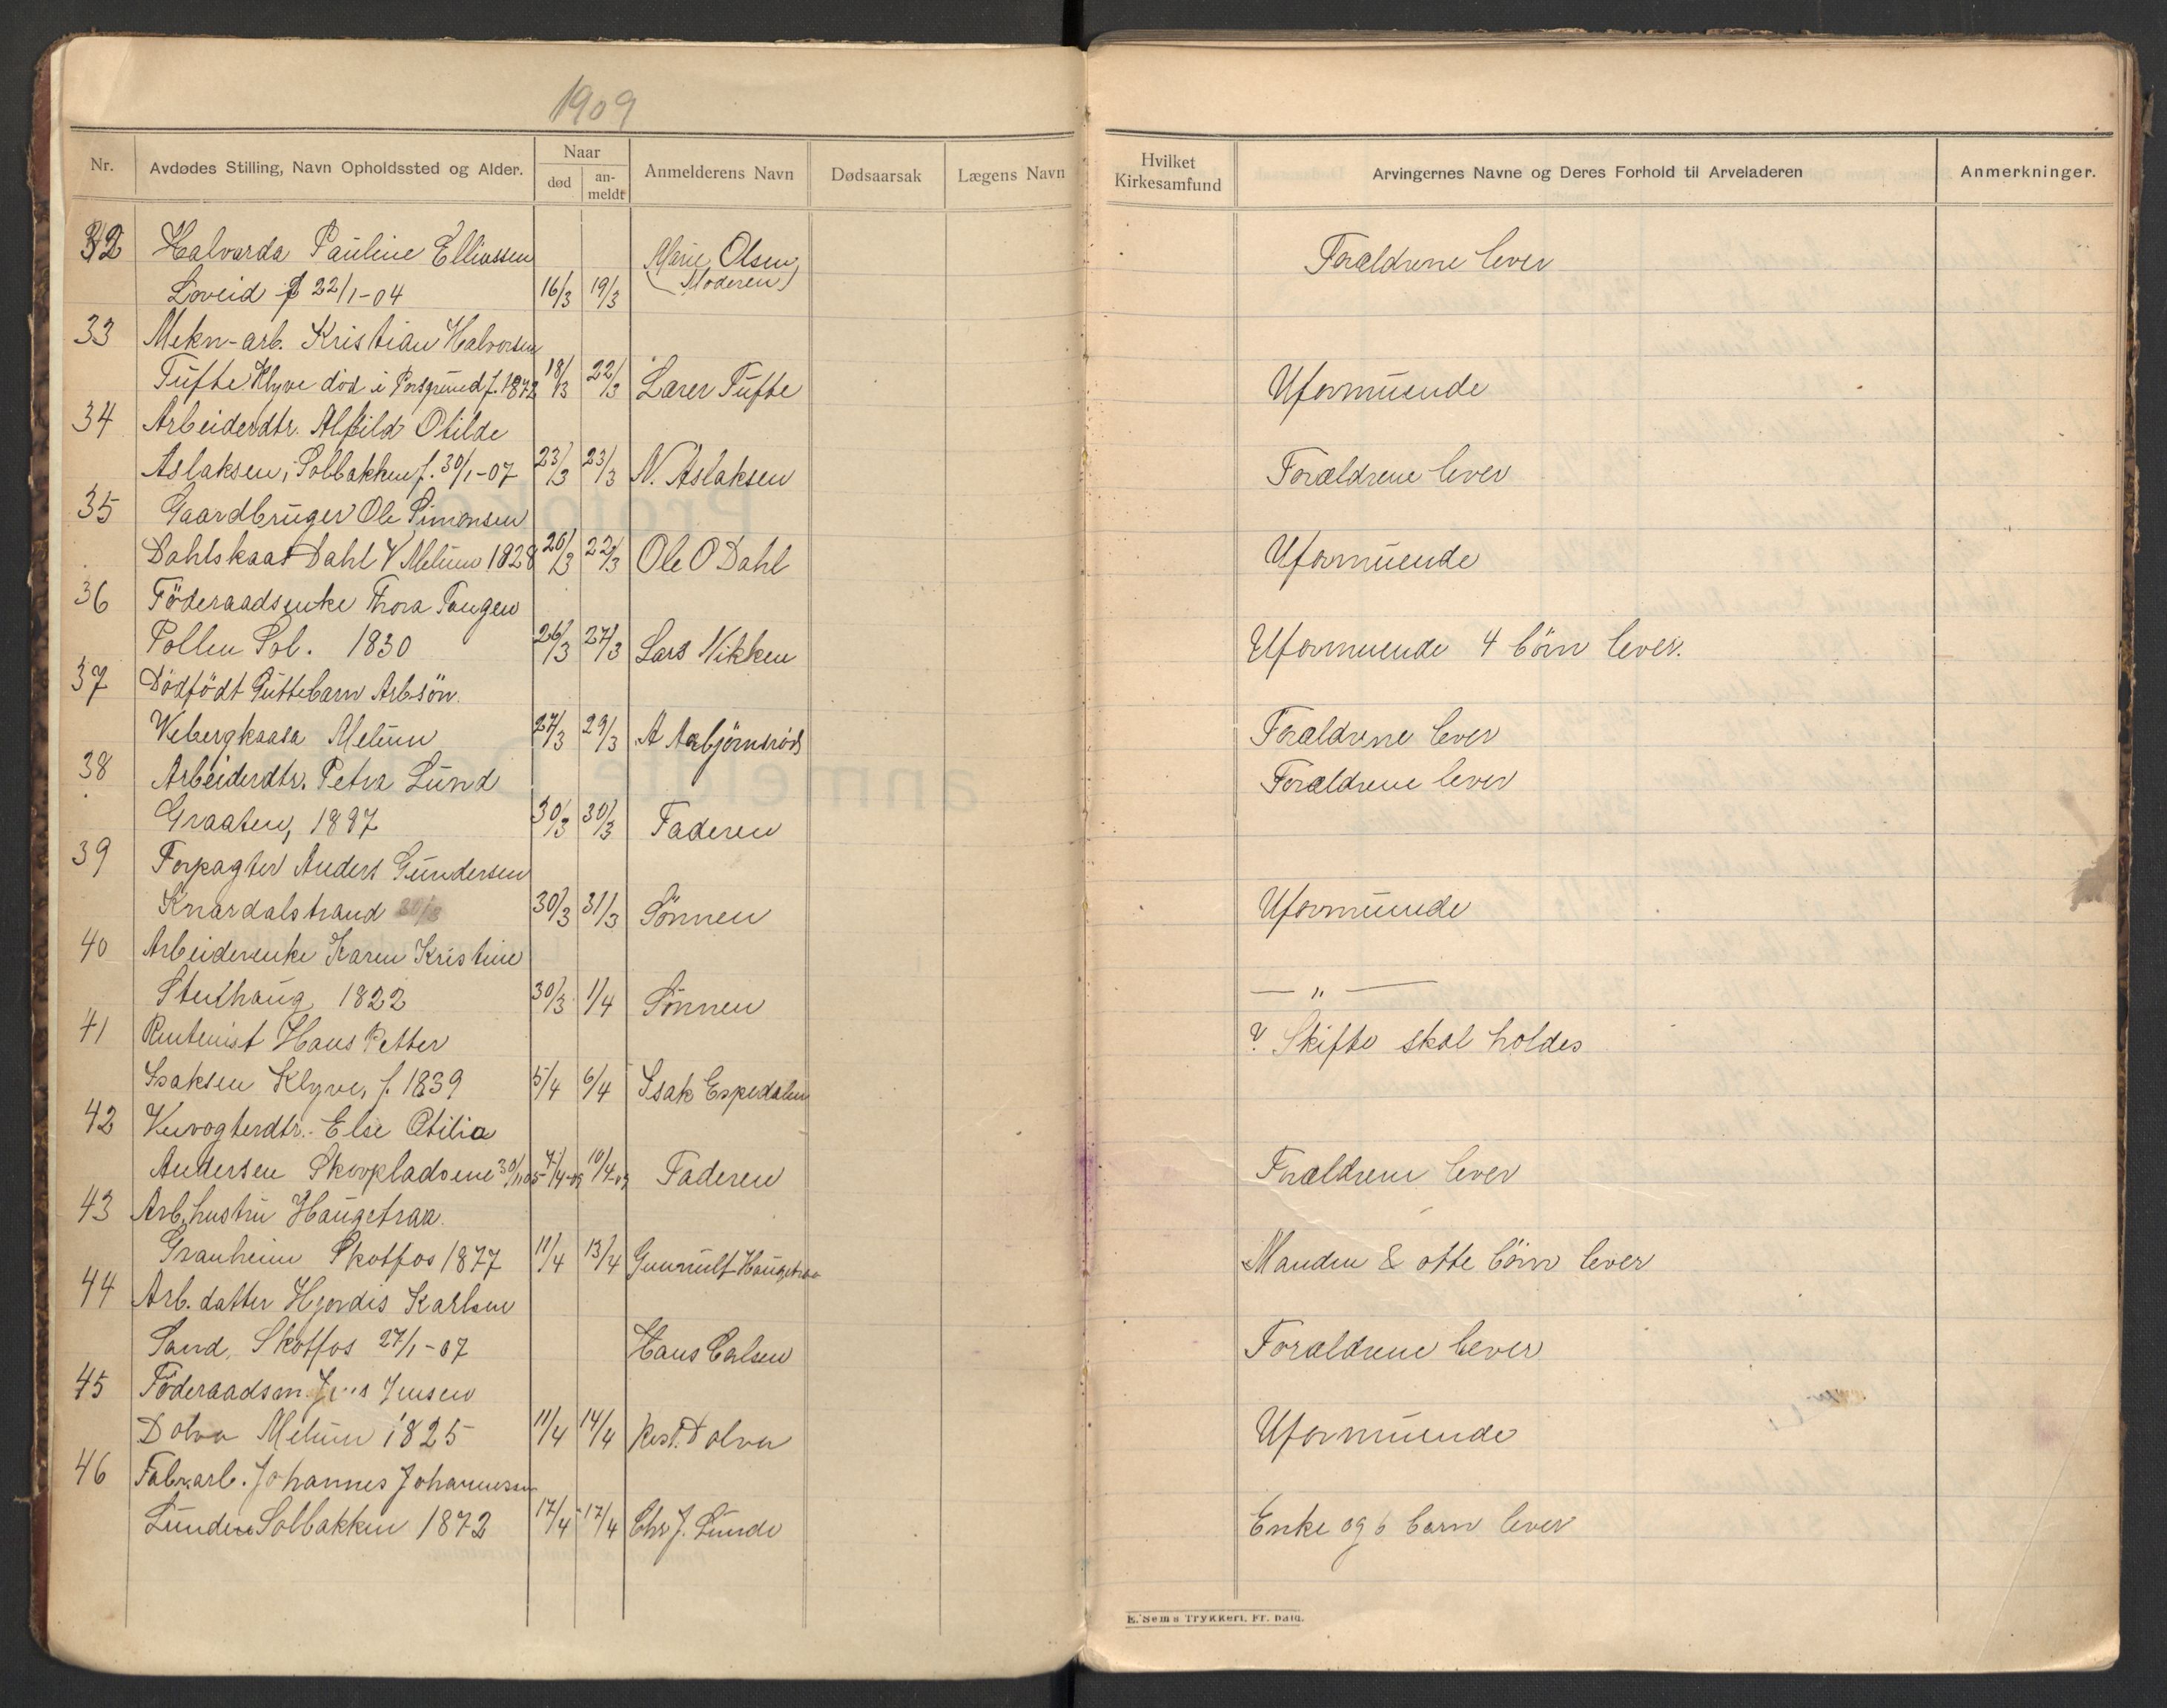 1909
Nr. Avdødes Stilling, Navn Opholdssted og Alder. Naar død anmeldt Anmelderens Navn Dødsaarsak Lægens Navn Hvilket Kirkesamfund Arvingernes Navne og Deres Forhold til Arveladeren Anmerkninger.
32 Halvarda Pauline Elliassen Marie Olsen Forældrene lever
Løveid f 22/1-04 16/3 19/3 (Moderen)
33 Mekn-arb. Kristian Halvorsen
Tufte Klyve död i Porsgrund f. 1872 18/3 22/3 Lærer Tufte Uformuende
34 Arbeiderdtr. Alfild Otilde
Aslaksen, Solbakken f. 30/1-07 23/3 23/3 N. Aslaksen Forældrene lever
35 Gaardbruger Ole Simonsen
Dahlskaas Dahl V Melum 1828 20/3 22/3 Ole O Dahl Uformuende
36 Föderaadsenke Thora Tangen
Pollen Sol. 1830 26/3 27/3 Lars Vikken Uformuende 4 börn lever.
37 Dödfödt Guttebarn Arb.sön.
Vebergkaasa Melum 27/3 29/3 A Asbjörnsröd Forældrene lever
38 Arbeiderdtr. Petra Lund Forældrene lever
Graaten, 1897 30/3 30/3 Faderen
39 Forpagter Anders Gundersen
Knardalstrand 30/3 30/3 31/3 Sönnen Uformuende
40 Arbeiderenke Karen Kristine
Stulhaug 1822 30/3 1/4 Sönnen — " —
41 Rentenist Hans Petter ? Skifte skal holdes
Isaksen Klyve, f. 1839 5/4 6/4 Isak Espedalen
42 Veivogterdtr. Else Otilia
Andersen Skovpladsene 30/11 05 7/4-09 10/4-09 Faderen Forældrene lever
43 Arb. hustru Haugetraa
Granheim Skotfos 1877 11/4 13/4 Gunnulf Haugetraa Manden & otte börn lever
44 Arb. datter Hjordis Karlsen
Sand, Skotfos 27/1-07 Hans Carlsen Forældrene lever
45 Föderaadsm. Jens Jensen
Dolva Melum 1825 11/4 14/4 Krist. Dolva Uformuende
46 Fabr.arb. Johannes Johannessen
Lunden Solbakken 1872 17/4 17/4 Chr J. Lunde Enke og 6 barn lever
E. Sems Trykkeri, Fr. hald.